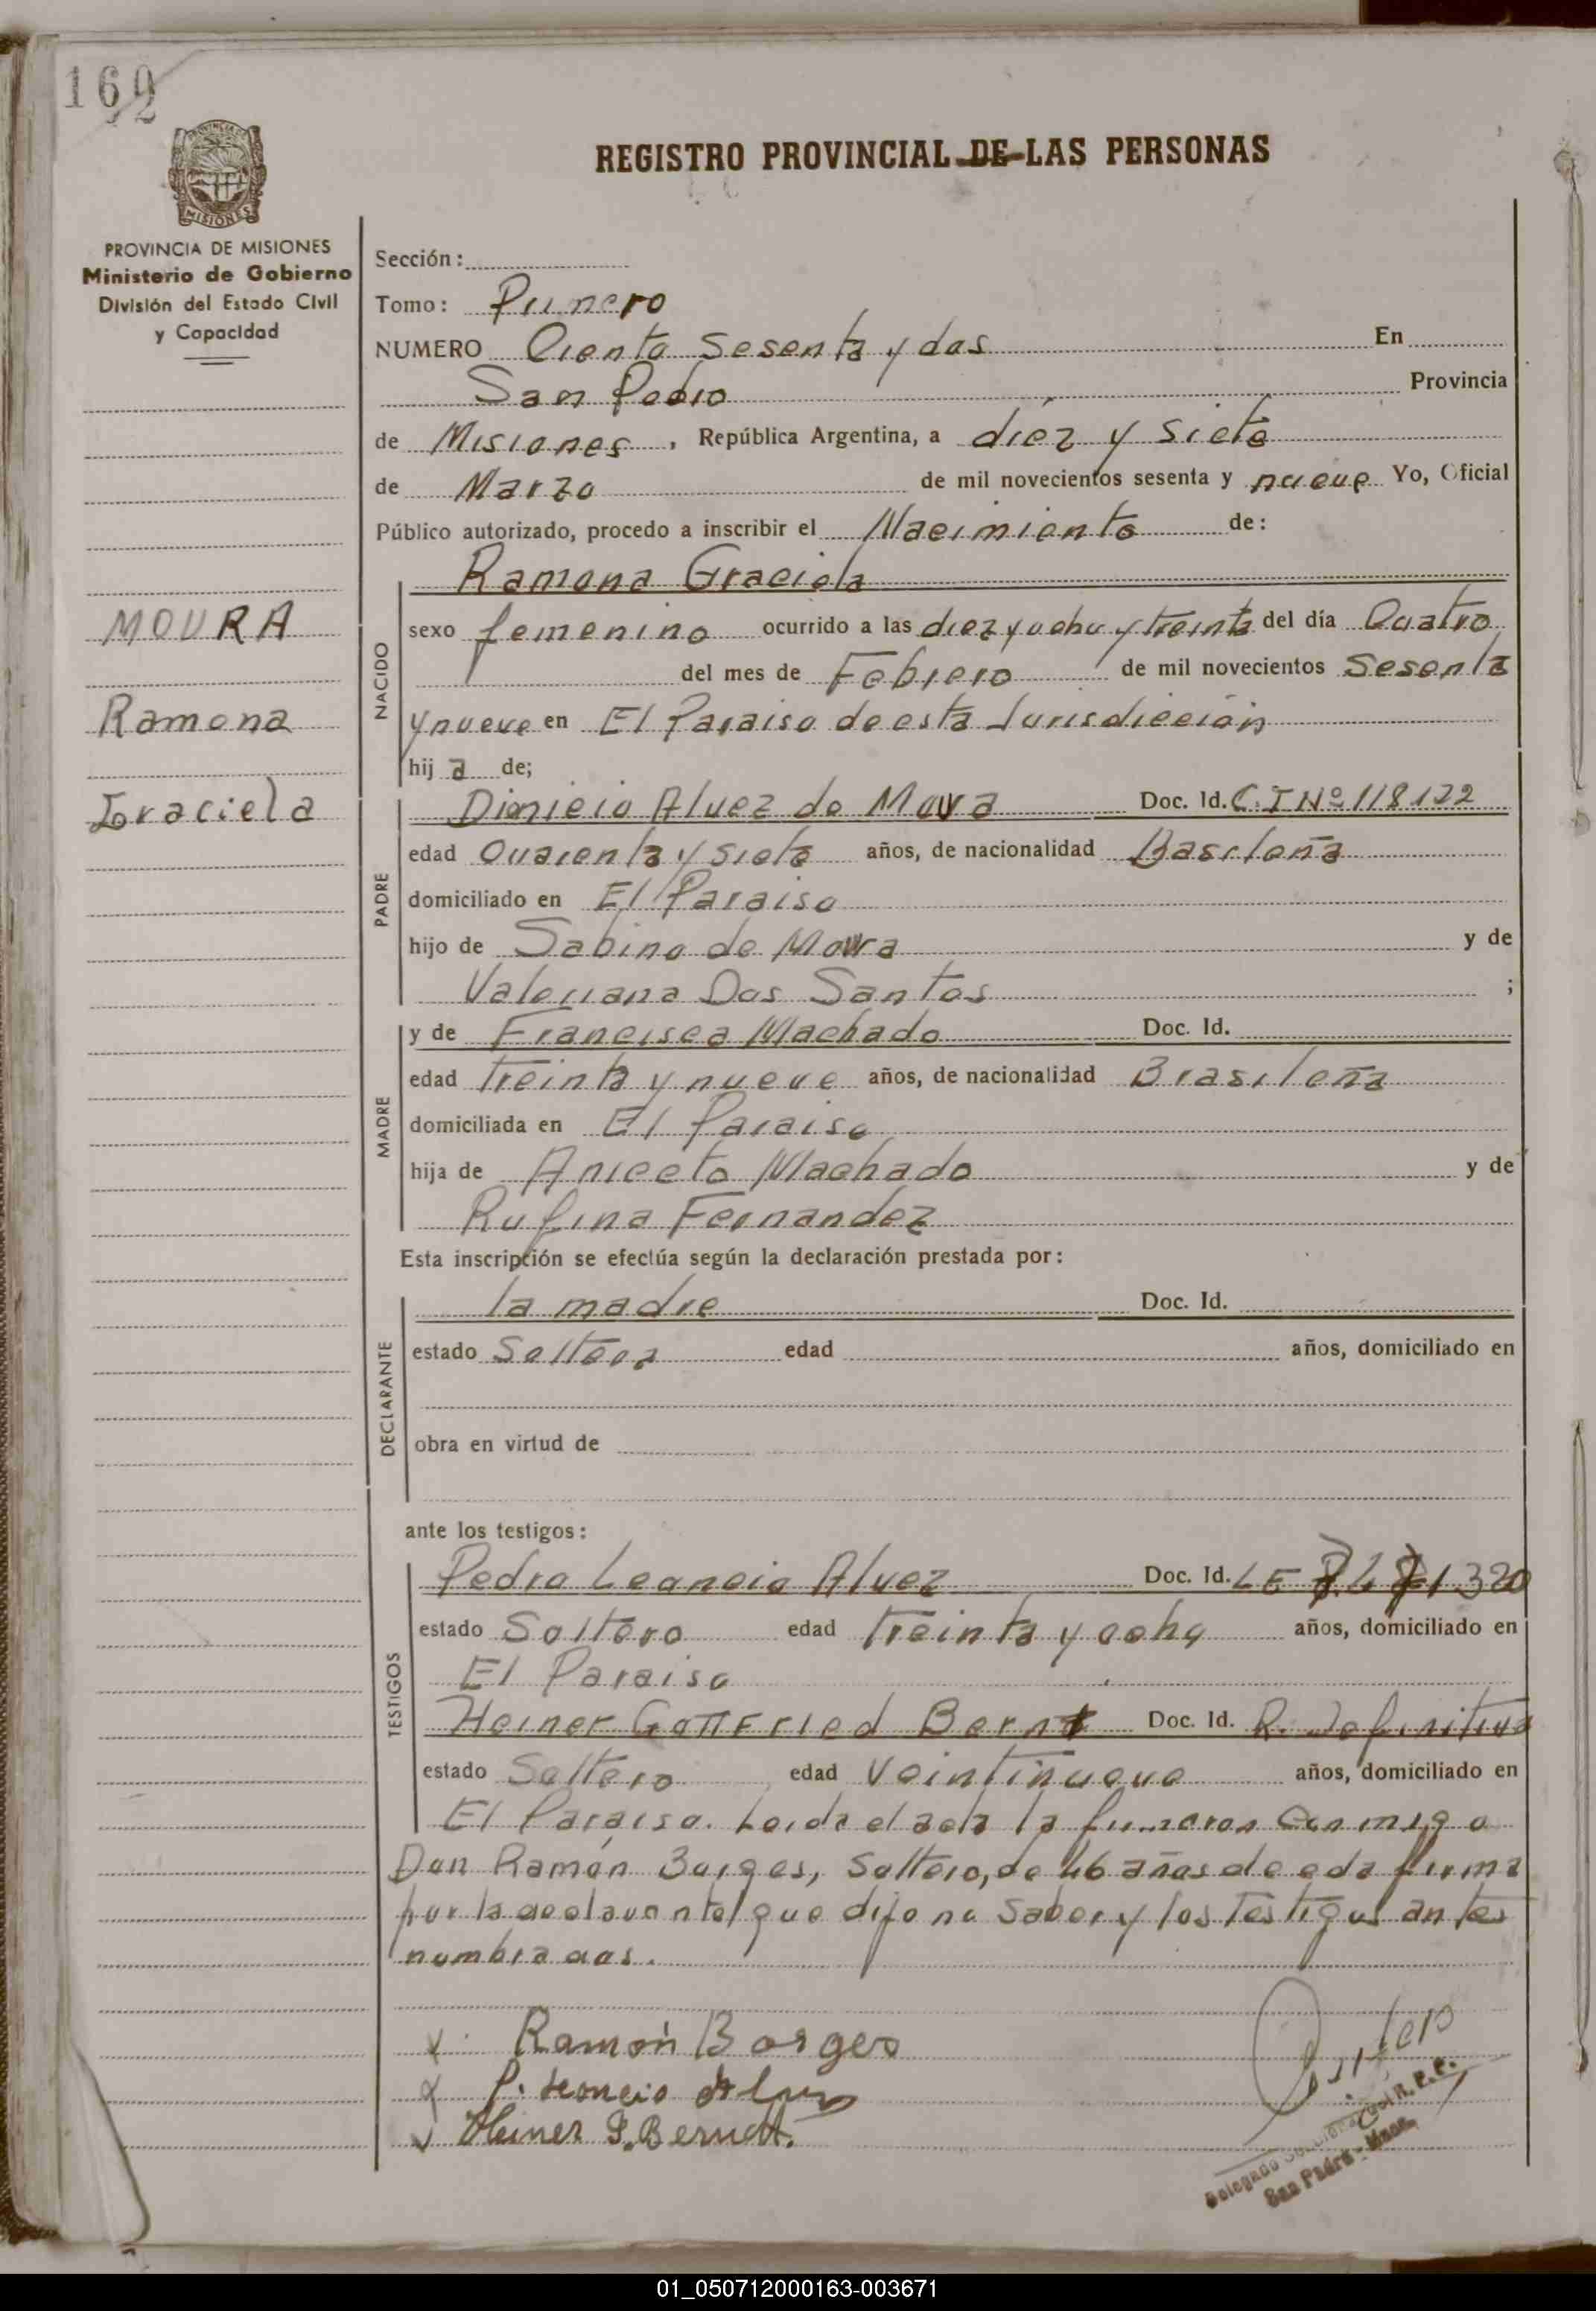 169
2
PROVINCIA DE MISIONES
MISIONES
PROVINCIA DE MISIONES
Ministerio de Gobierno
División del Estado Civil
y Capacidad
MOURA
Ramona
Graciela
REGISTRO PROVINCIAL DE LAS PERSONAS
Sección:
Tomo: Primero
NUMERO Ciento Sesenta y dos En
San Pedro Provincia
de Misiones, República Argentina, a diéz y siete
de Marzo de mil novecientos sesenta y nueve Yo, Oficial
Público autorizado, procedo a inscribir el Nacimiento de:
Ramona Graciela
NACIDO
sexo femenino ocurrido a las diez y ocho y treinta del día Cuatro
del mes de Febrero de mil novecientos Sesenta
y nueve en El Paraiso de esta Jurisdicción
hij a de;
PADRE
Dionicio Alvez de Moura Doc. Id. C.I Nº 118122
edad Cuarenta y siete años, de nacionalidad Basileña
domiciliado en El Paraiso
hijo de Sabino de Moura y de
Valeriana Dos Santos ;
MADRE
y de Francisca Machado Doc. Id.
edad treinta y nueve años, de nacionalidad Brasileña
domiciliada en El Paraiso
hija de Aniceto Machado y de
Rufina Fernandez
Esta inscripción se efectúa según la declaración prestada por:
DECLARANTE
la madre Doc. Id.
estado Soltera edad años, domiciliado en
obra en virtud de
ante los testigos:
TESTIGOS
Pedro Leoncio Alvez Doc. Id. LE
estado Soltero edad treinta y ocho años, domiciliado en
El Paraiso
Heiner Gottfried Bernt Doc. Id. R. Definitiva
estado Soltero edad Veintinueve años, domiciliado en
El Paraiso. Leida el acta la firmaron Conmigo
Don Ramón Borges, Soltero, de 46 años de eda firma
por la declarante que dijo no saber y los testigos antes
nombrados.
Ramón Borges
P. Leoncio Alvez
Heiner G. Berndt.
Delegado Seccional del R. P. P.
San Pedro - Mnes.
01_050712000163-003671